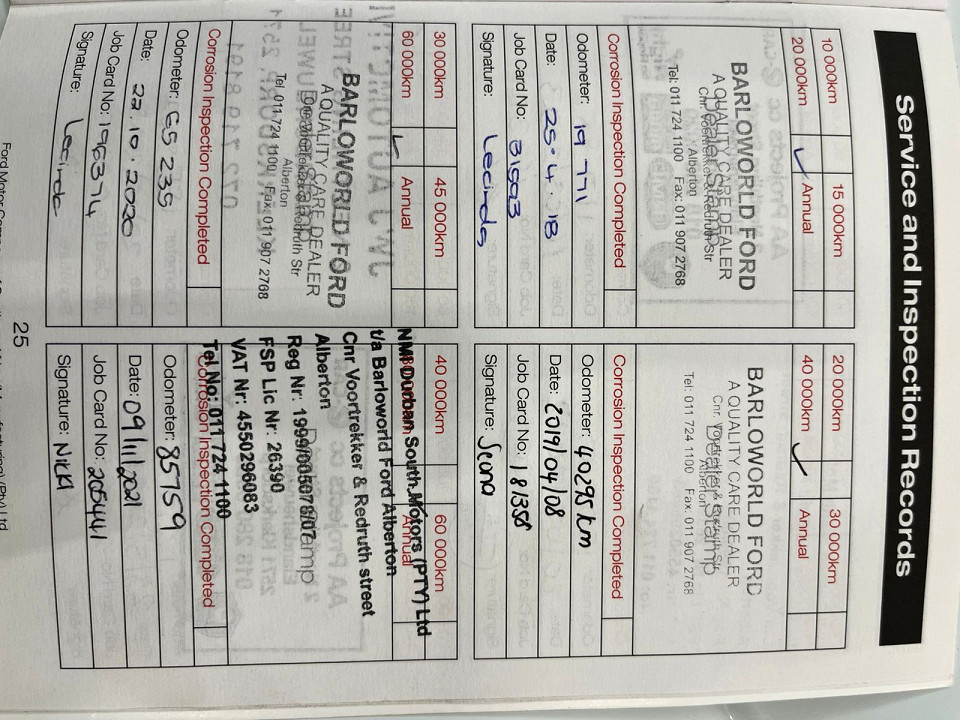 Service and Inspection Records
10 000km 15 000km
20 000km ✓ Annual
BARLOWORLD FORD
A QUALITY CARE DEALER
Cnr Voortrekker & Redruth Str
Alberton
Tel: 011 724 1100 Fax: 011 907 2768
Corrosion Inspection Completed
Odometer: 19 771
Date: 25-4-18
Job Card No:
Signature:
20 000km 30 000km
40 000km ✓ Annual
BARLOWORLD FORD
A QUALITY CARE DEALER
Cnr. Voortrekker & Redruth Str
Dealer Stamp
Alberton
Tel: 011 724 1100 Fax: 011 907 2768
Corrosion Inspection Completed
Odometer: 40295 km
Date: 2019/04/08
Job Card No: 181358
Signature:
30 000km 45 000km
60 000km ✓ Annual
BARLOWORLD FORD
A QUALITY CARE DEALER
Cnr Voortrekker & Redruth Str
Alberton
Tel 011 724 1100 Fax: 011 907 2768
Corrosion Inspection Completed
Odometer: 65 235
Date: 22.10.2020
Job Card No: 196374
Signature:
40 000km 60 000km
Annual
NMI Durban South Motors (PTY) Ltd
t/a Barloworld Ford Alberton
Cnr Voortrekker & Redruth street
Alberton
Reg Nr: 1999/005078/07
FSP Lic Nr: 26390
VAT Nr: 4550296083
Tel No: 011 724 1100
Corrosion Inspection Completed
Odometer: 85759
Date: 09/11/2021
Job Card No: 205441
Signature: NIKKI
25